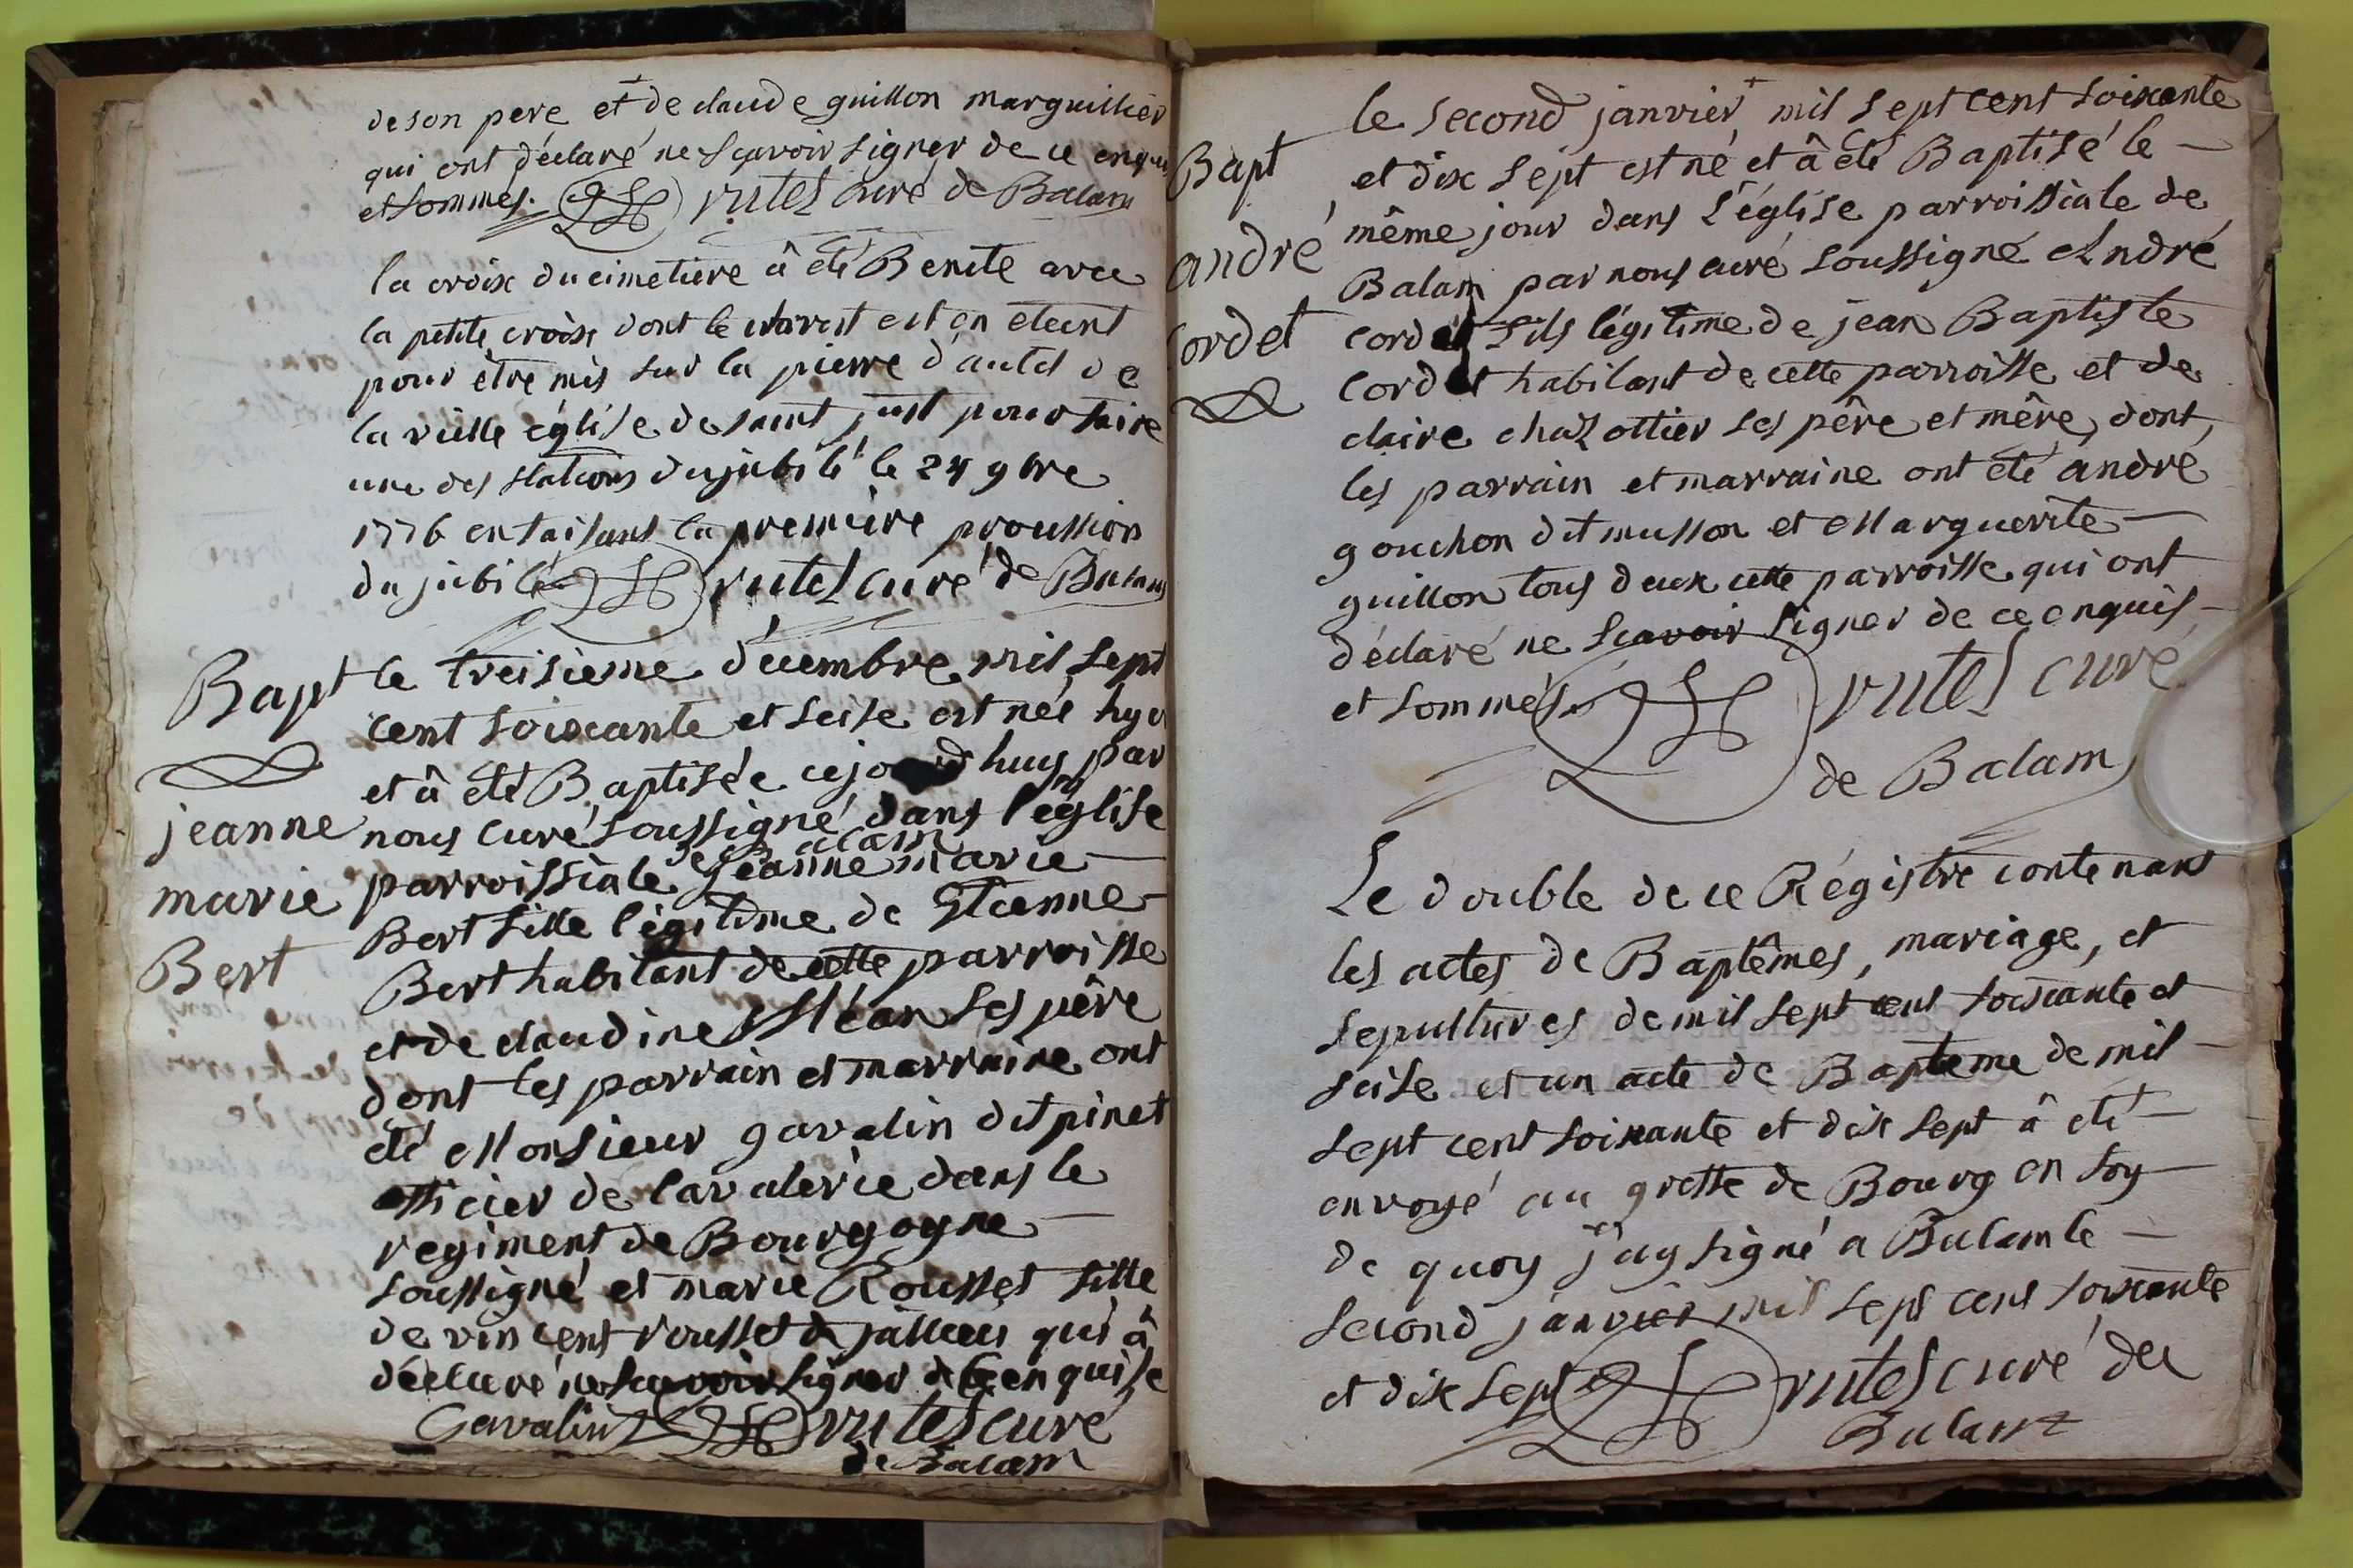 de son pere et de claude guillon marguillier
qui ont déclaré ne sçavoir signer de ce enquis
et sommes. rutes curé de Balam
la croix du cimetiere â été Benite avec
la petite croix dont le est en etant
pour être mis sur la pierre d'autel de
la vielle église de saint just pour faire
une des stations du jubilé le 24 9bre
1776 en faisant la premiere proussion
du jubilé rutes curé de Balam
Bapt
jeanne
marie
Bert
le treisieme décembre mil sept
cent soixante et seise est née hyer
et â été Baptisée cejourd huy par
nous curé soussigné dans l'église
parroissiale de Balam Jeanne marie
Bert fille légitime de Etienne
Bert habitant de cette parroisse
et de claudine ses père
dont les parrain et marraine ont
été Monsieur gavalin dit pinet
officier de cavalerie dans le
regiment de Bourgogne
soussigné et marie Rousset fille
de vincent rousset de qui â
déclaré ne sçavoir signer de ce enquise
Gavalin rutes curé
de Balam
Bapt
andré
cordet
le second janvier mil sept cent soixante
et dix sept est né et â été Baptisé le
même jour dans l'église parroissiale de
Balam par nous curé soussigné André
cordet fils légitime de jean Baptiste
cordet habitant de cette parroisse et de
claire chazottier ses pêre et mêre, dont
les parrain et marraine ont été andré
gouchon dit musson et Marguerite
guillon tous deux cette parroisse qui ont
déclaré ne scavoir signer de ce enquis
et sommés. rutes curé
de Balam
Le double de ce Régistre contenant
les actes de Baptêmes, mariage, et
sepultures de mil sept cent soixante et
seise et un acte de Bapteme de mil
sept cent soixante et dix sept â eté
envoyé au greffe de Bourg en foy
de quoy j'ay signé a Balam le
second janvier mil sept cent soixante
et dix sept rutes curé de
Balam